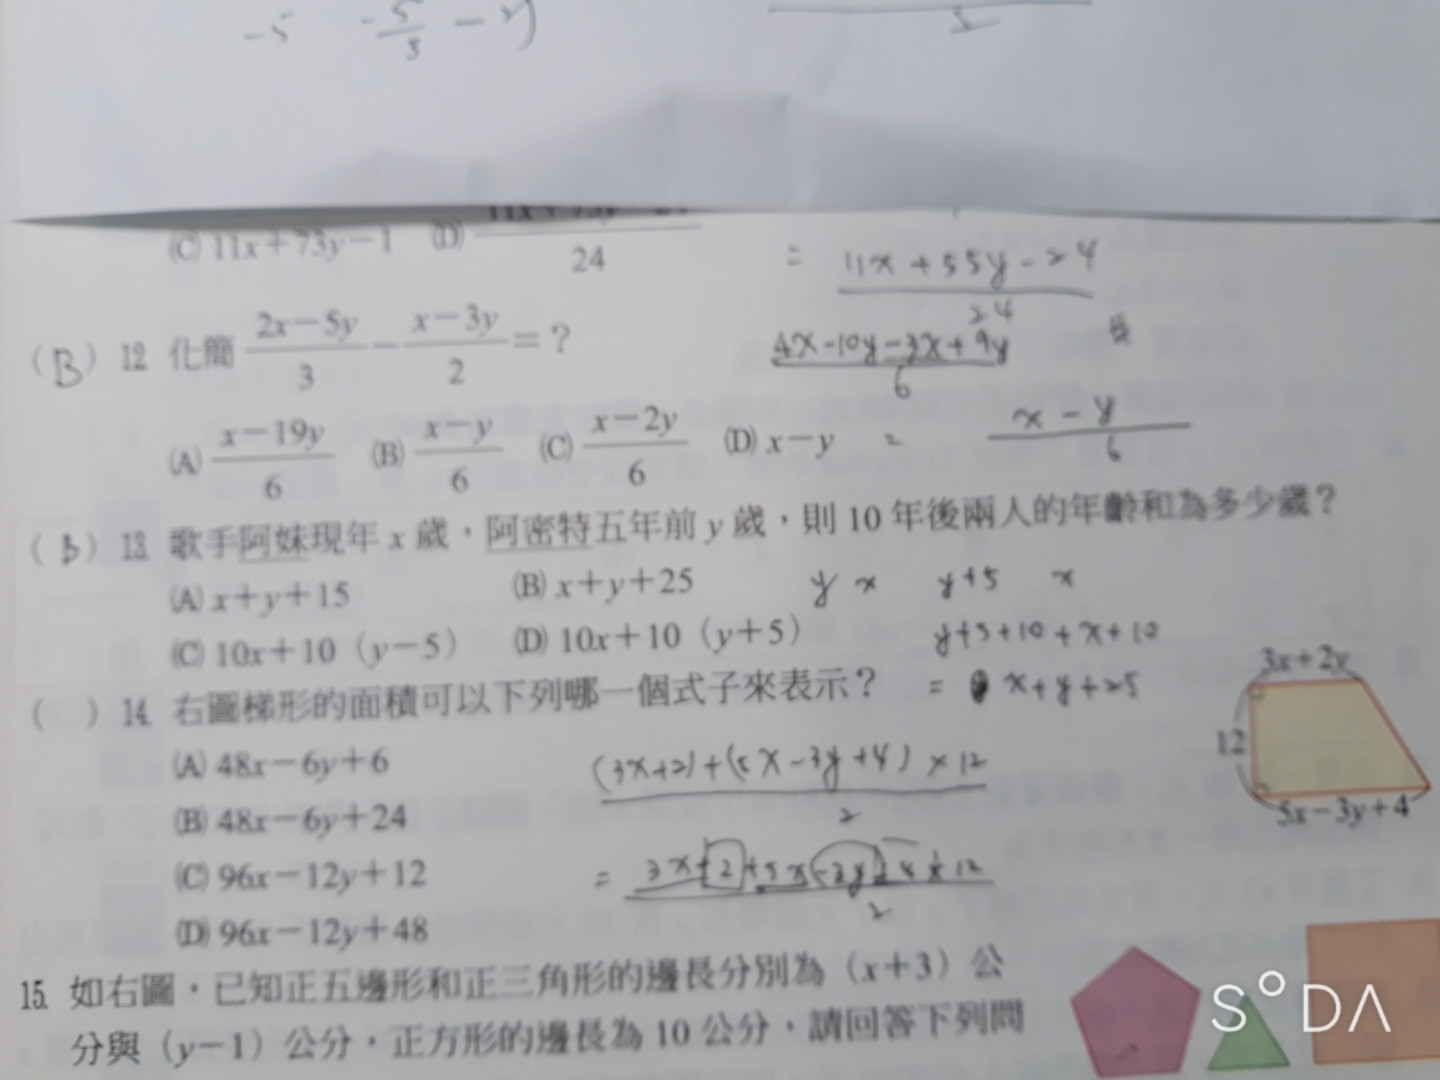 -5 -5/3 - y)
2
(C) 11x+73y-1 (D) 24
= (11x+55y-24)/24
(B) 12. 化簡 (2x-5y)/3 - (x-3y)/2 = ?
(4x-10y-3x+9y)/6
(A) (x-19y)/6 (B) (x-y)/6 (C) (x-2y)/6 (D) x-y
= (x-y)/6
(B) 13. 歌手阿妹現年 x 歲，阿密特五年前 y 歲，則 10 年後兩人的年齡和為多少歲？
(A) x+y+15 (B) x+y+25
y x y+5 x
(C) 10x+10（y-5） (D) 10x+10（y+5）
y+5+10+x+10
( ) 14. 右圖梯形的面積可以下列哪一個式子來表示？
= x+y+25
3x+2y
12
5x-3y+4
(A) 48x-6y+6
((3x+2)+(5x-3y+4)×12)/2
(B) 48x-6y+24
(C) 96x-12y+12
= (3x+2+5x-3y+4×12)/2
(D) 96x-12y+48
15. 如右圖，已知正五邊形和正三角形的邊長分別為（x+3）公
分與（y-1）公分，正方形的邊長為 10 公分，請回答下列問
S°DA